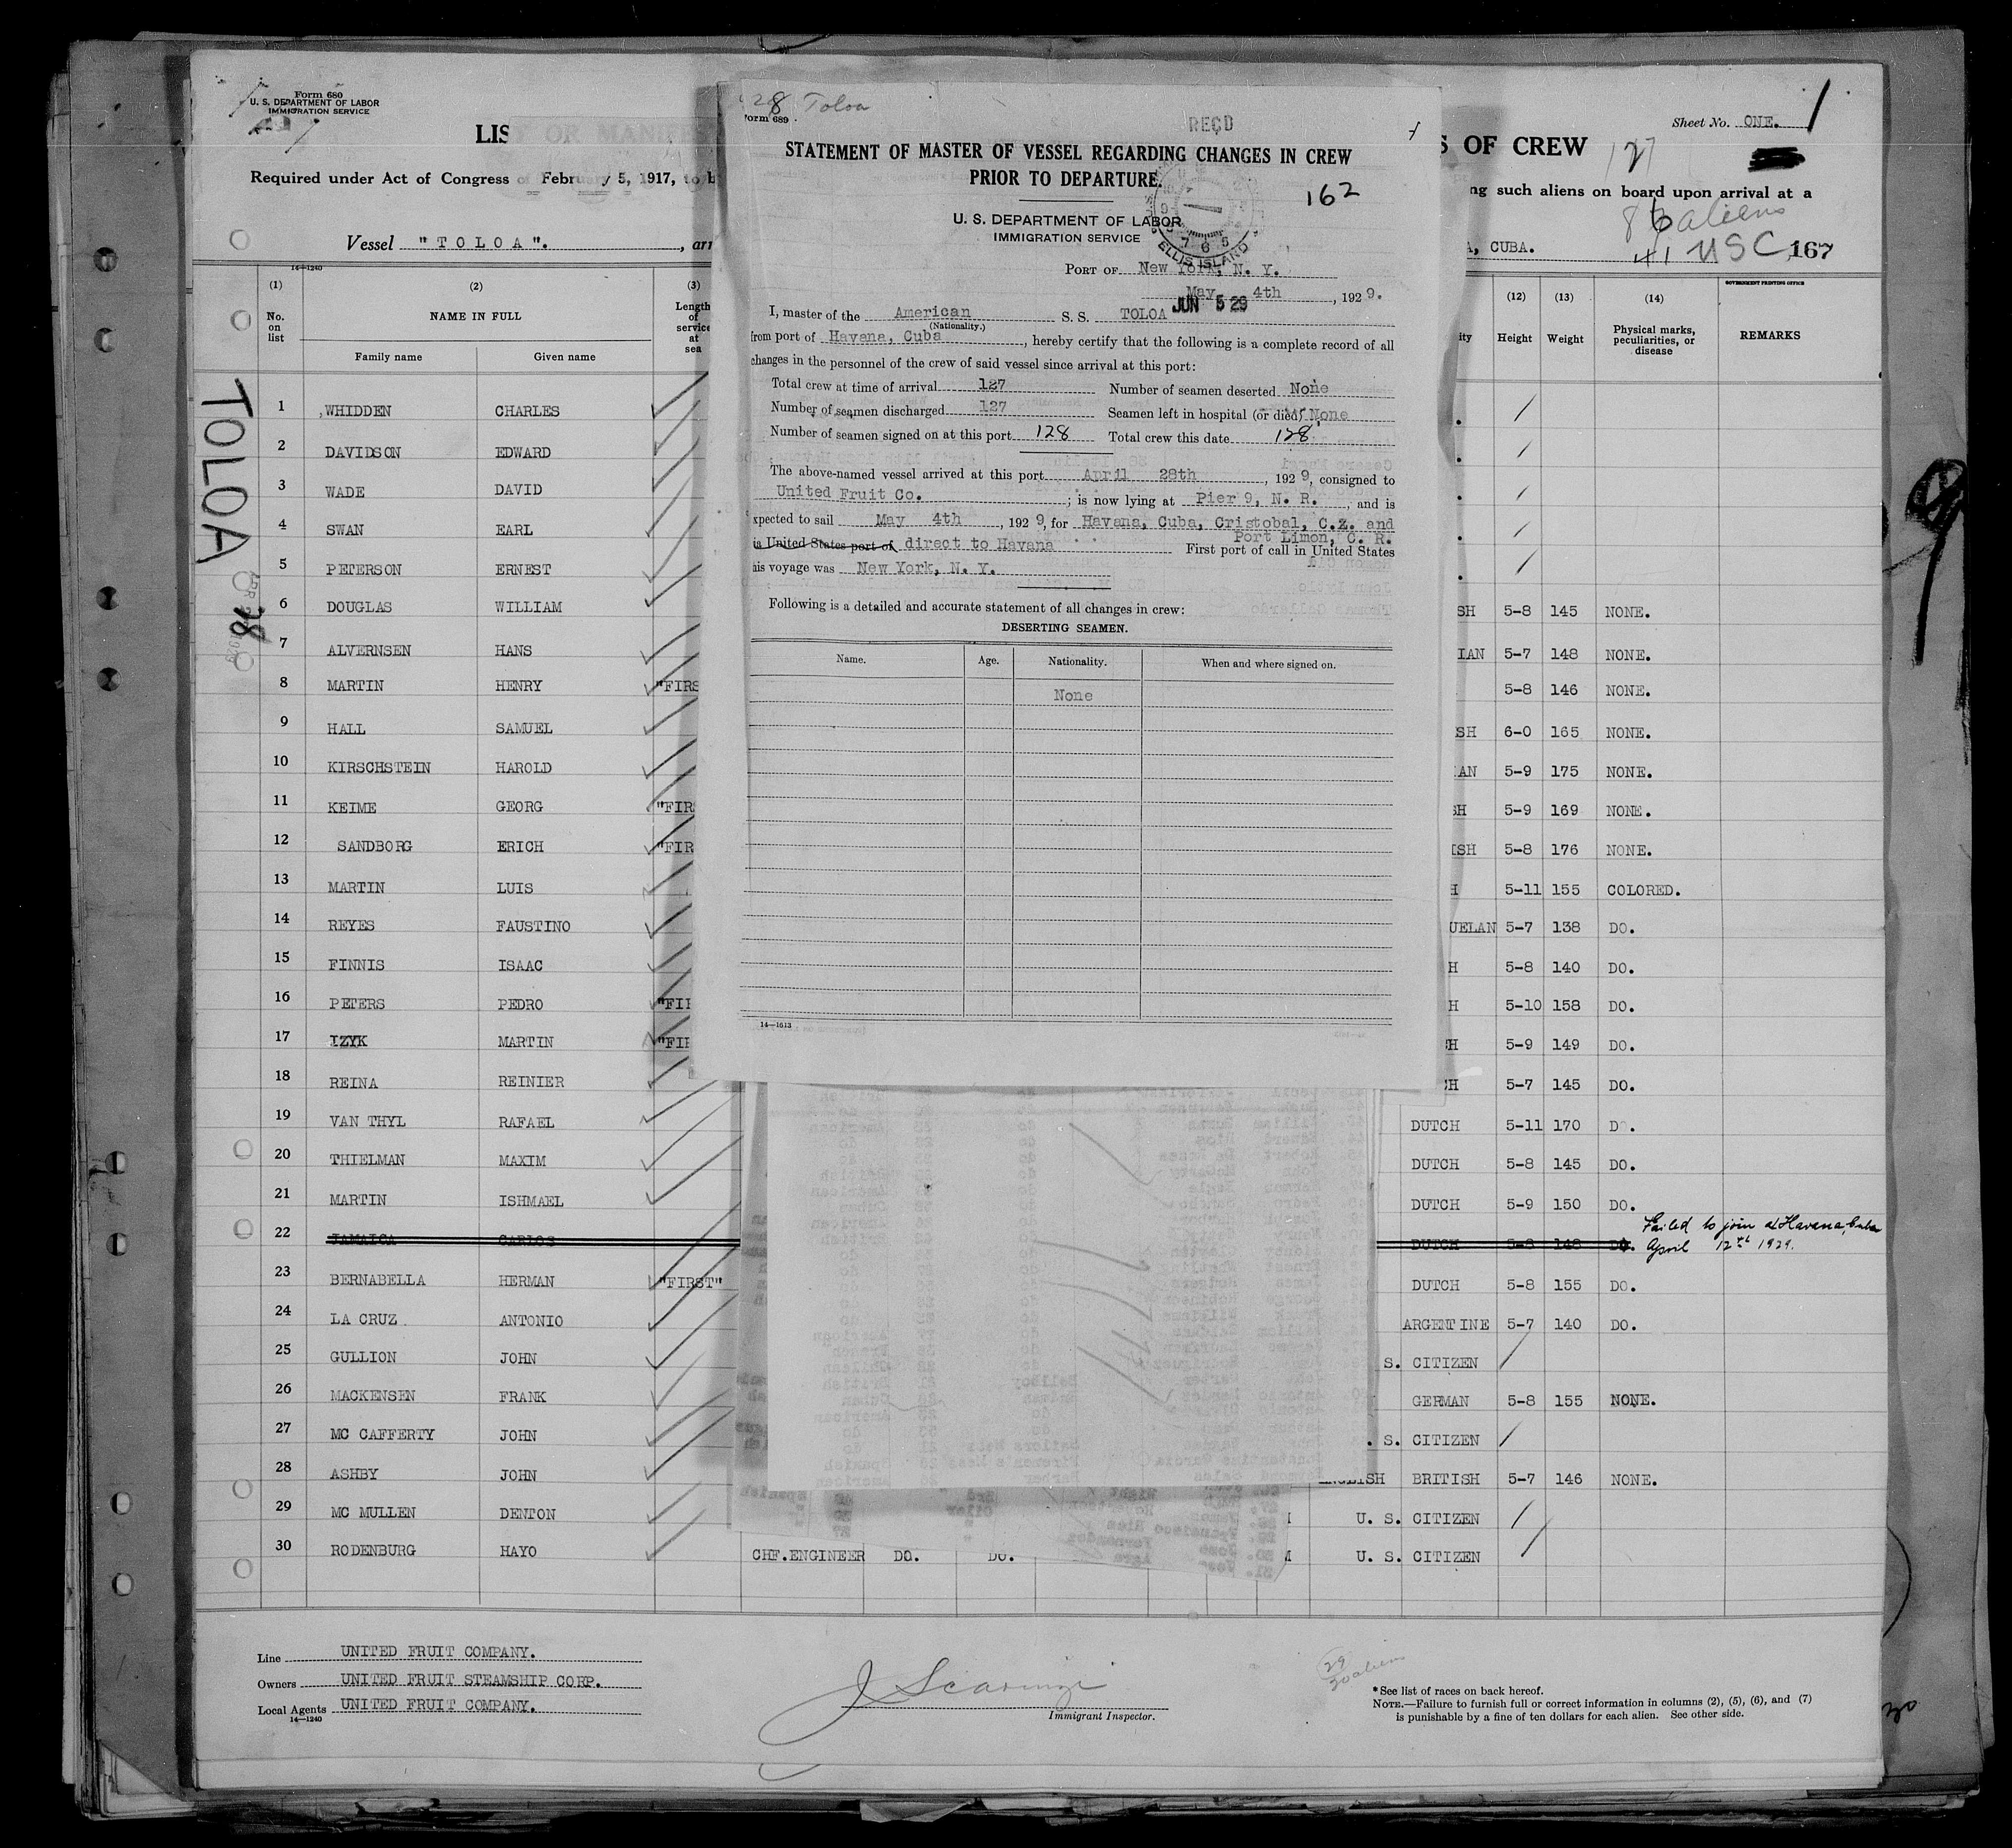 Form 680
U. S. DEPARTMENT OF LABOR
IMMIGRATION SERVICE
LIS
Required under Act of Congress of February 5, 1917, to b
Vessel "TOLOA".
, arr
14—1240
(1)
No. on list
(2)
NAME IN FULL
Family name
Given name
(3)
Length of service at sea
TOLOA
1 WHIDDEN CHARLES
2 DAVIDSON EDWARD
3 WADE DAVID
4 SWAN EARL
5 PETERSON ERNEST
6 DOUGLAS WILLIAM
7 ALVERNSEN HANS
8 MARTIN HENRY "FIRS
9 HALL SAMUEL
10 KIRSCHSTEIN HAROLD
11 KEIME GEORG "FIR
12 SANDBORG ERICH "FIR
13 MARTIN LUIS
14 REYES FAUSTINO
15 FINNIS ISAAC
16 PETERS PEDRO "FI
17 IZYK MARTIN "FI
18 REINA REINIER
19 VAN THYL RAFAEL
20 THIELMAN MAXIM
21 MARTIN ISHMAEL
22 JAMAICA CARLOS
23 BERNABELLA HERMAN "FIRST"
24 LA CRUZ ANTONIO
25 GULLION JOHN
26 MACKENSEN FRANK
27 MC CAFFERTY JOHN
28 ASHBY JOHN
29 MC MULLEN DENTON
30 RODENBURG HAYO CHF.ENGINEER DO. DO.
Line UNITED FRUIT COMPANY.
Owners UNITED FRUIT STEAMSHIP CORP.
Local Agents UNITED FRUIT COMPANY.
14—1240
Immigrant Inspector.
8 Toloa
Form 689
REC'D
STATEMENT OF MASTER OF VESSEL REGARDING CHANGES IN CREW
PRIOR TO DEPARTURE.
162
U. S. DEPARTMENT OF LABOR
IMMIGRATION SERVICE
ELLIS ISLAND
PORT OF New York, N. Y.
May 4th, 1929.
JUN 5 29
I, master of the American S. S. TOLOA
(Nationality.)
from port of Havana, Cuba, hereby certify that the following is a complete record of all
changes in the personnel of the crew of said vessel since arrival at this port:
Total crew at time of arrival 127 Number of seamen deserted None
Number of seamen discharged 127 Seamen left in hospital (or died) None
Number of seamen signed on at this port 128 Total crew this date 128
The above-named vessel arrived at this port April 28th, 1929, consigned to
United Fruit Co.; is now lying at Pier 9, N. R., and is
xpected to sail May 4th, 1929, for Havana, Cuba, Cristobal, C.Z. and
Port Limon, C. R.
ia United States port of direct to Havana First port of call in United States
his voyage was New York, N. Y.
Following is a detailed and accurate statement of all changes in crew:
DESERTING SEAMEN.
Name. Age. Nationality. When and where signed on.
None
14—1613
Sheet No. ONE. 1
S OF CREW
127
ng such aliens on board upon arrival at a
86 aliens
A, CUBA.
41 USC
167
GOVERNMENT PRINTING OFFICE
ity
(12)
Height
(13)
Weight
(14)
Physical marks, peculiarities, or disease
REMARKS
SH 5-8 145 NONE.
IAN 5-7 148 NONE.
5-8 146 NONE.
SH 6-0 165 NONE.
AN 5-9 175 NONE.
SH 5-9 169 NONE.
ISH 5-8 176 NONE.
H 5-11 155 COLORED.
UELAN 5-7 138 DO.
H 5-8 140 DO.
H 5-10 158 DO.
H 5-9 149 DO.
CH 5-7 145 DO.
DUTCH 5-11 170 DO.
DUTCH 5-8 145 DO.
DUTCH 5-9 150 DO.
DUTCH 5-8 148 DO. Failed to join at Havana, Cuba
April 12th 1929.
DUTCH 5-8 155 DO.
ARGENTINE 5-7 140 DO.
S. CITIZEN
GERMAN 5-8 155 NONE.
. S. CITIZEN
ENGLISH BRITISH 5-7 146 NONE.
U. S. CITIZEN
U. S. CITIZEN
29
30 aliens
*See list of races on back hereof.
NOTE.—Failure to furnish full or correct information in columns (2), (5), (6), and (7)
is punishable by a fine of ten dollars for each alien. See other side.
30